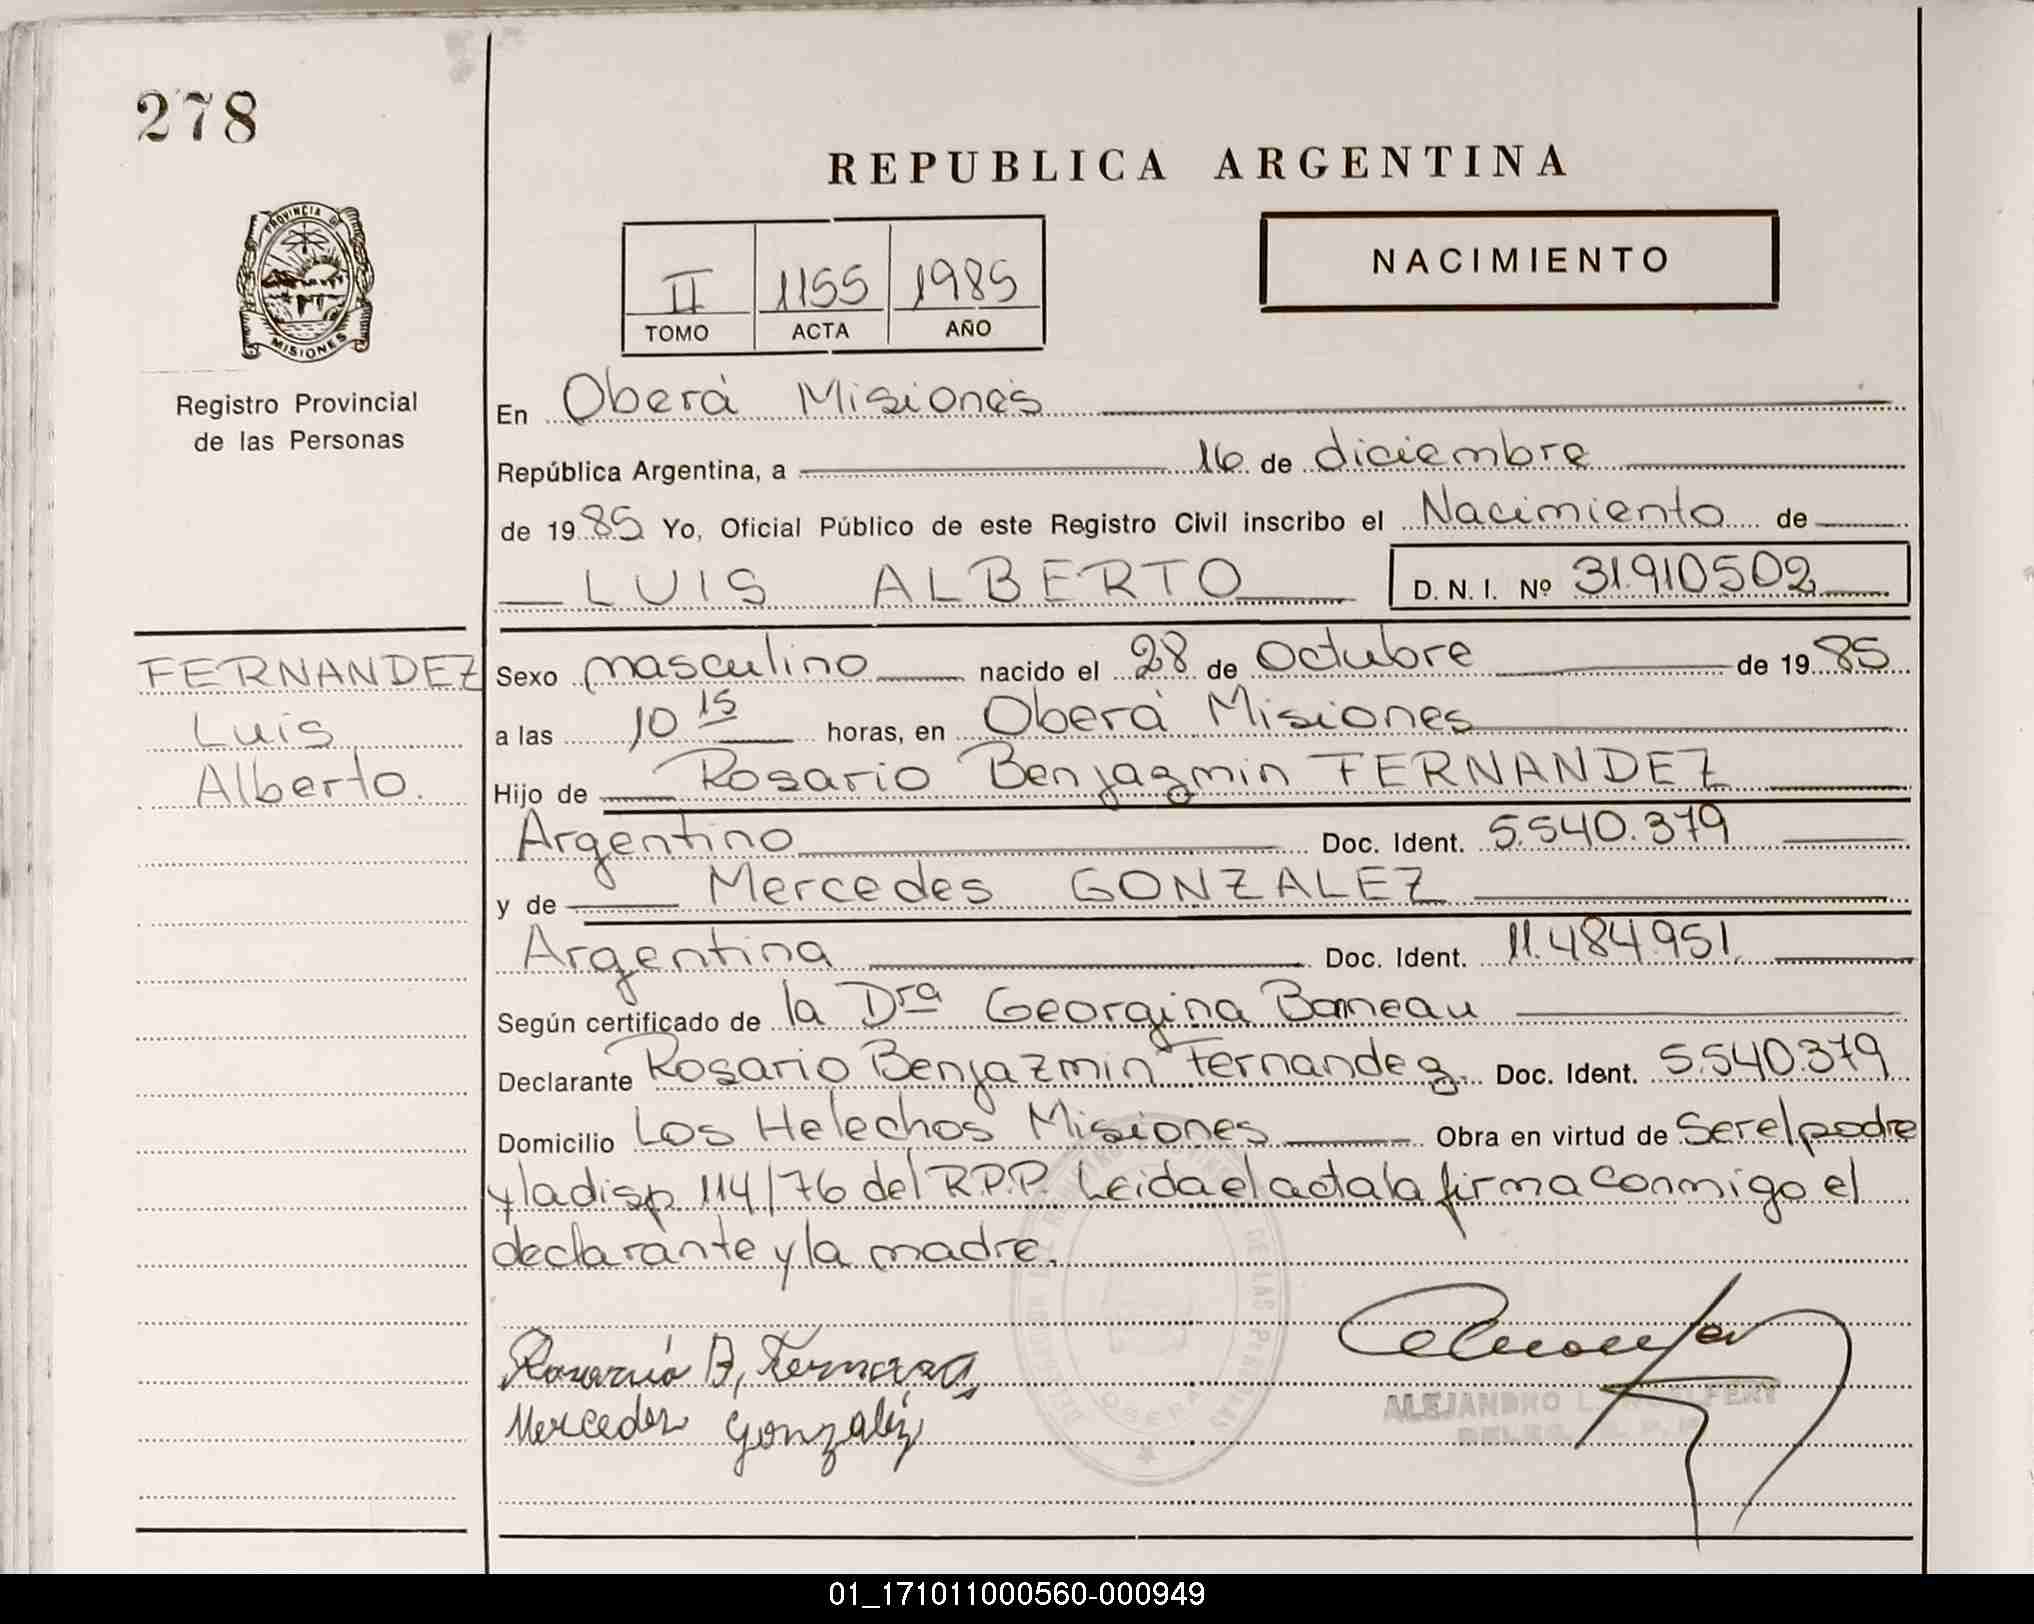 278
REPUBLICA ARGENTINA
PROVINCIA DE
MISIONES
Registro Provincial
de las Personas
II 1155 1985
TOMO ACTA AÑO
NACIMIENTO
En Oberá Misiones
República Argentina, a 16 de diciembre
de 1985 Yo, Oficial Público de este Registro Civil inscribo el Nacimiento de
LUIS ALBERTO D. N. I. Nº 31.910502
FERNANDEZ
Luis
Alberto.
Sexo masculino nacido el 28 de Octubre de 1985
a las 10 15 horas, en Oberá Misiones
Hijo de Rosario Benjazmin FERNANDEZ
Argentino Doc. Ident. 5.540.379
y de Mercedes GONZALEZ
Argentina Doc. Ident. 11.484.951
Según certificado de la Dra Georgina
Declarante Rosario Benjazmin Fernandez. Doc. Ident. 5.540.379
Domicilio Los Helechos Misiones Obra en virtud de Ser el padre
y la disp. 114/76 del R.P.P. Leida el acta la firma conmigo el
declarante y la madre.
Rosario B,
Mercedes Gonzalez
DE LAS PERSONAS
OBERA
ALEJANDRO L.
01_171011000560-000949